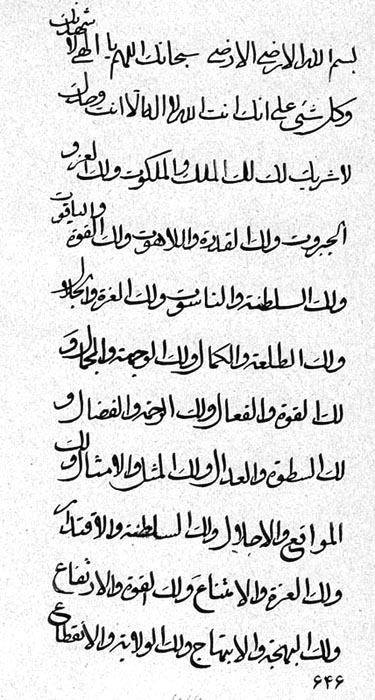 بسم الله الارضی الارضی سبحانک اللهم یا الهی لاشهدنک
وکل شئ علی انک انت الله لا اله الا انت وحدک
لا شریک لک لک الملک والملکوت ولک العز و
الجبروت ولک القدرة واللاهوت ولک القوة والیاقوت
ولک السلطنة والناسوت ولک العزة والجلال
ولک الطلعة والکمال ولک الوجهة والجمال و
لک القوة والفعال ولک الرحمة والفضال و
لک السطوة والعدال ولک المثل والامثال ولک
المواقع والاجلال ولک السلطنة والاقتدار
ولک العزة والامتناع ولک القوة والارتفاع
ولک البهجة والابتهاج ولک الولایة والانقطاع
۶۴۶